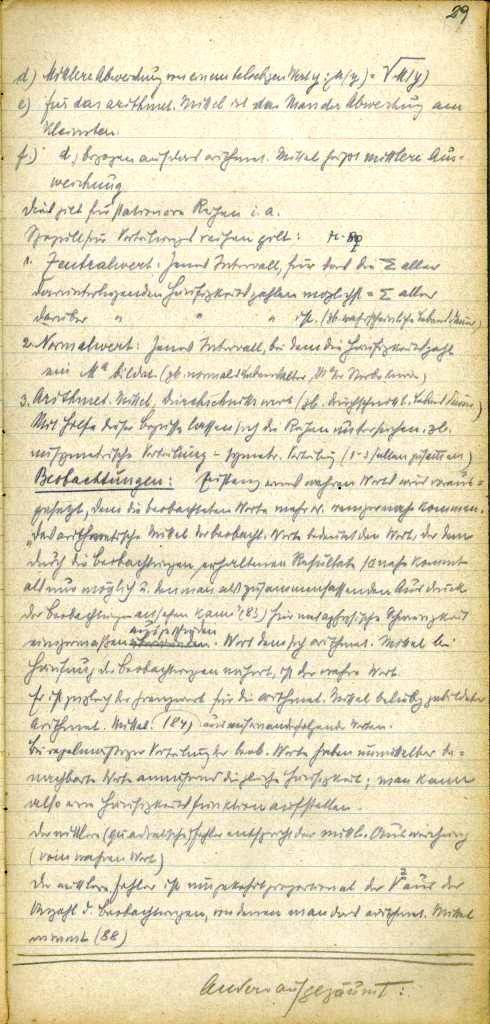 29
d) Mittlere Abweichung von einem beliebigen Wert y: μ(y) = √M(y)
e) für das arithmet. Mittel ist das Maß der Abweichung am
kleinsten
f.) d, bezogen auf das arithmet. Mittel heißt mittlere Aus-
weichung
Dies gilt für stationäre Reihen i. a.
Speziell für Verteilungsreihen gilt:
1. Zentralwert: Jenes Intervall, für das die Σ aller
darunterliegenden Häufigkeitszahlen möglichst = Σ aller
darüber " " " ist. (zb. wahrscheinliche Lebensdauer)
2. Normalwert: Jenes Intervall, bei dem die Häufigkeitszahl
ein Ma bildet. (zb. normales Lebensalter, der Sterbelinie)
3. Arithmet. Mittel, Durchschnittswert (zb. durchschnittl. Lebensdauer)
Mit Hilfe dieser Begriffe lassen sich die Reihen untersuchen. zb.
unsymmetrische Verteilung – symetr. Verteilung (1-3 fallen zusammen)
Beobachtungen: Existenz eines wahren Werts wird voraus-
gesetzt, dem die beobachteten Werte mehr od. weniger nahe kommen.
"Das arithmetische Mittel der beobacht. Werte bedeutet den Wert, der dem
durch die Beobachtungen erhaltenen Resultate so nahe kommt
als nur möglich u. den man als zusammenfassenden Ausdruck
der Beobachtungen ansehen kann" (83) Hier metaphysische Schwierigkeit
einigermaßen Wert dem sich arithmet. Mittel bei
Häufung d. Beobachtungen nähert, ist der wahre Wert
Er ist zugleich der Grenzwert für die arithmet. Mittel beliebig gebildeter
arithmet. Mittel. (84) aus aufeinanderfolgenden Werten.
Bei regelmäßiger Verteilung der beob. Werte haben unmittelbar be-
nachbarte Werte annähernd die gleiche Häufigkeit; man kann
also eine Häufigkeitsfunktion aufstellen.
Der mittlere (quadratische) Fehler entspricht der mittl. Ausweichung
(vom wahren Wert)
Der mittlere Fehler ist umgekehrt proportional der √2 aus der
Anzahl d. Beobachtungen, von denen man das arithmet. Mittel
nimmt (88)
Anders aufgezäumt: